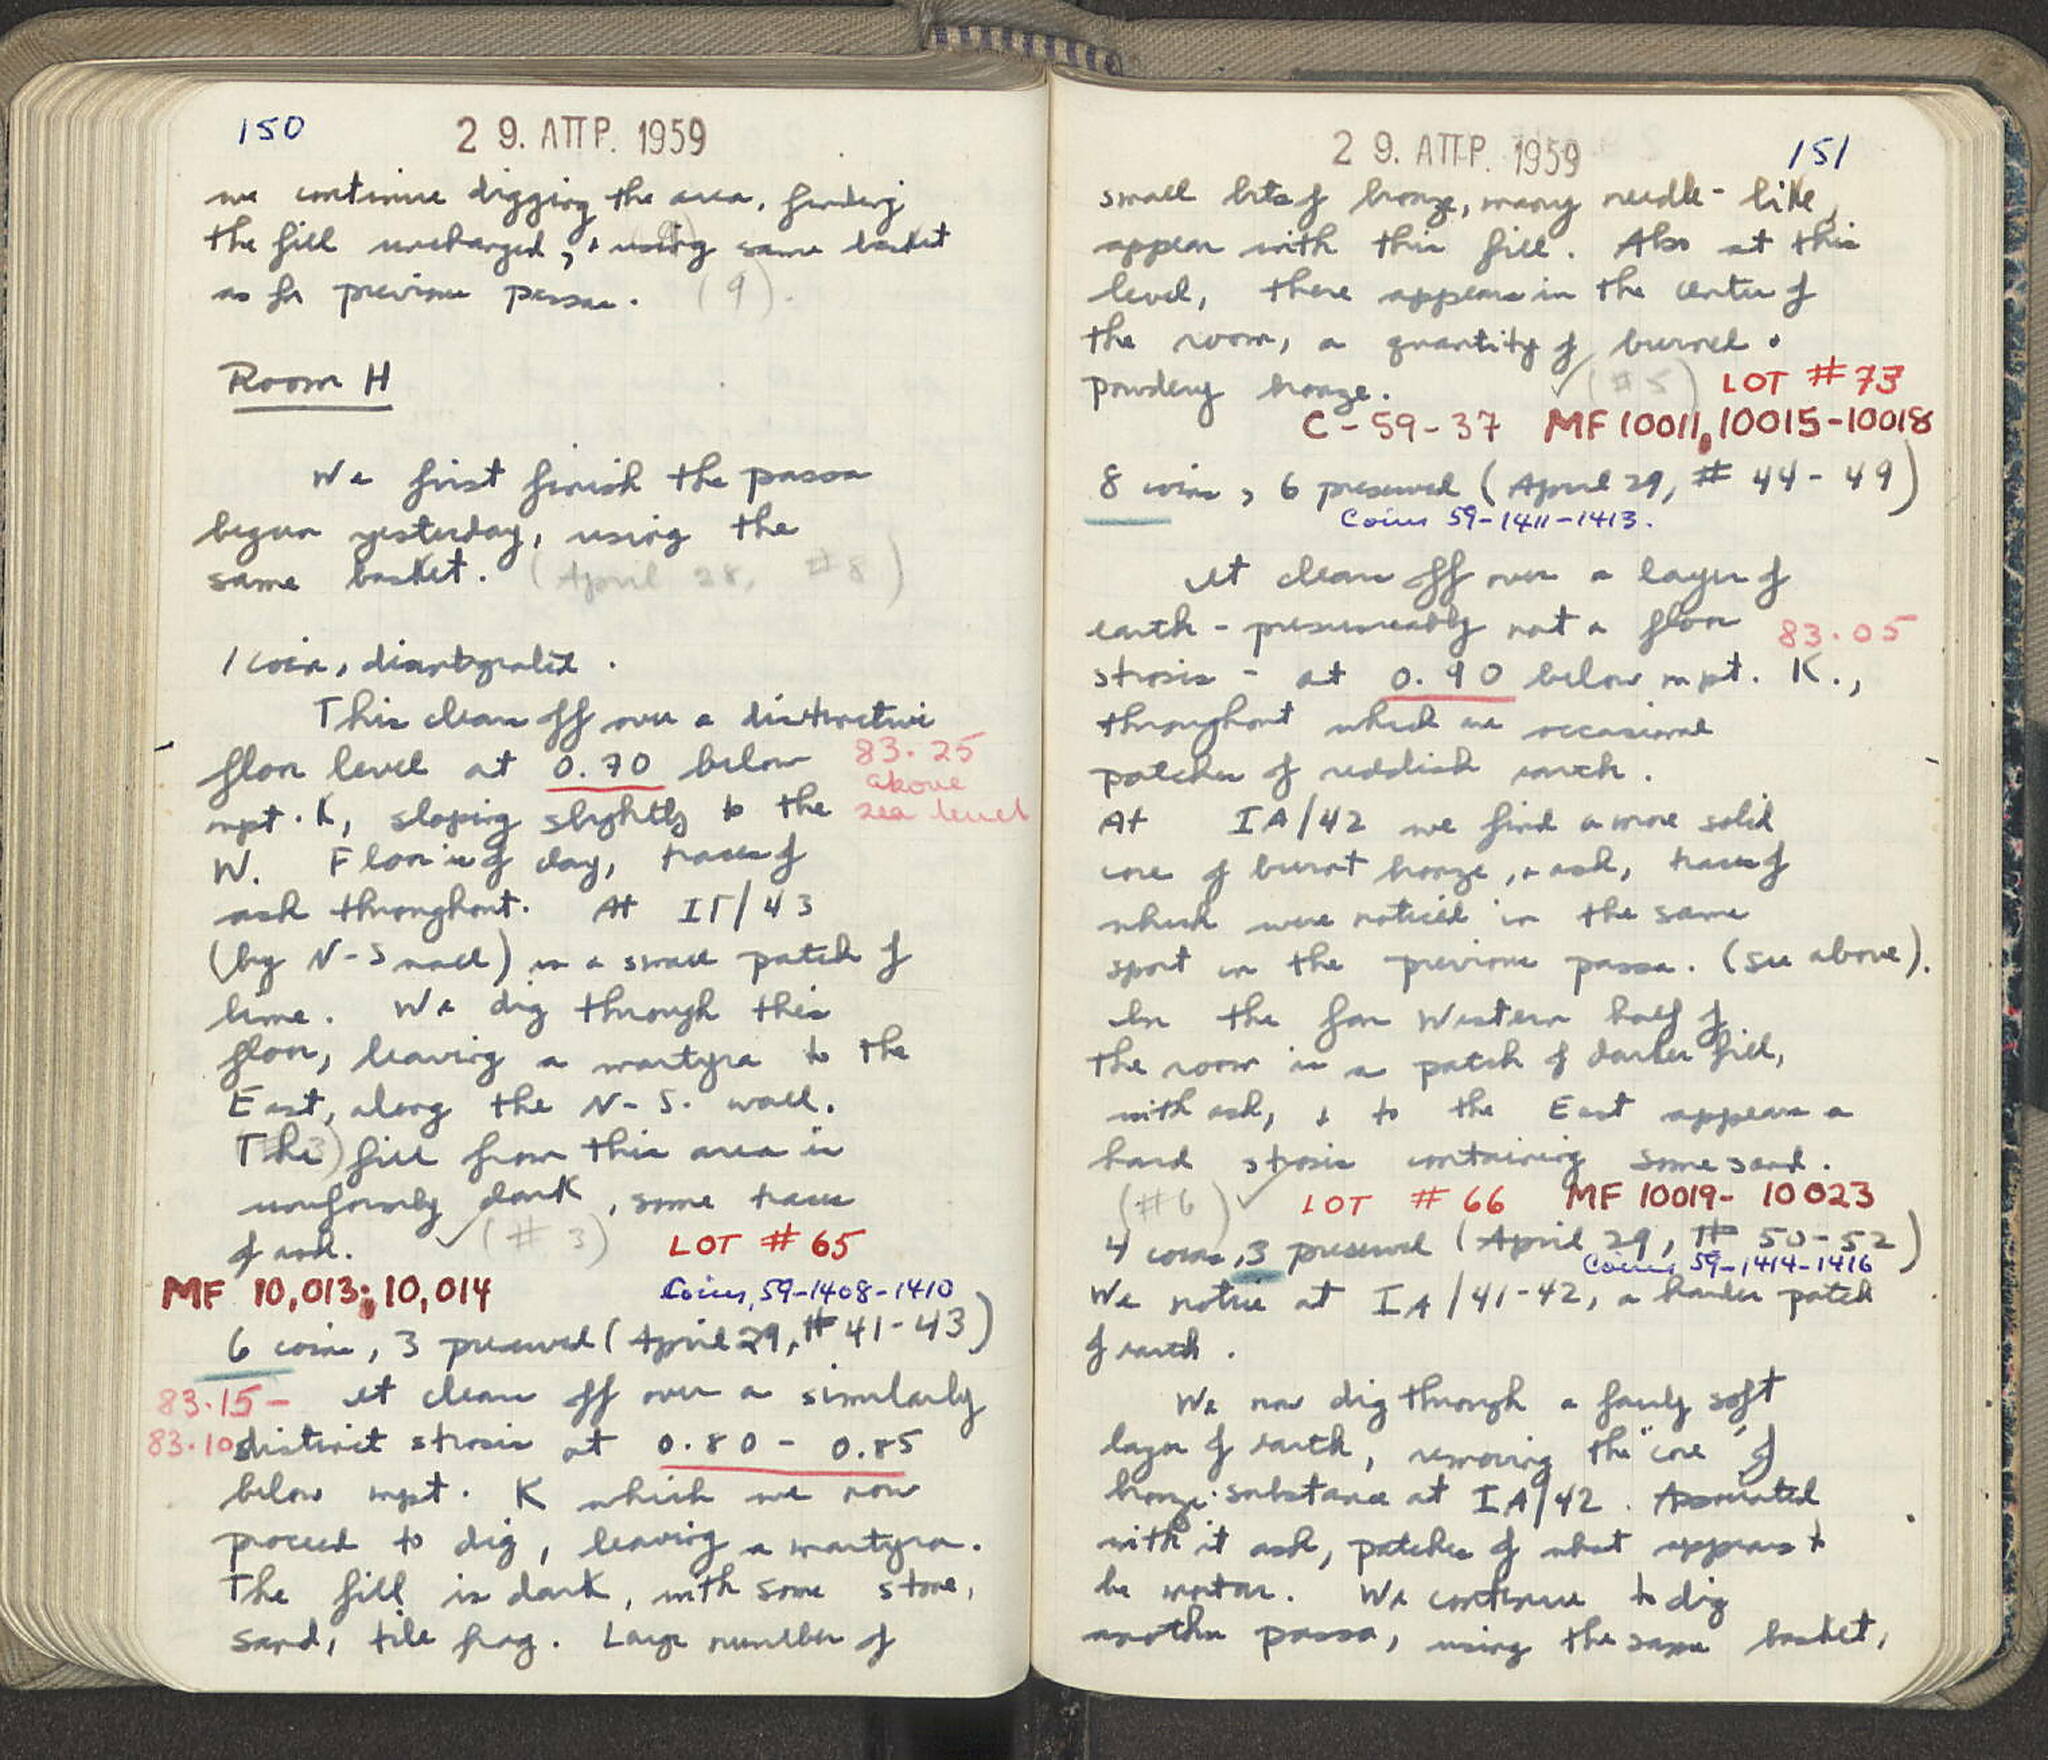 150
29. ΑΠΡ. 1959
we continue digging the area, finding
the fill unchanged, + using same basket
as for previous passa. (9).
Room H
We first finish the passa
begun yesterday, using the
same basket. (April 28, #8)
1 coin, disintegrated.
This clean off over a distinctive
floor level at 0.70 below 83.25
above
mpt. K, sloping slightly to the sea level
W. Floor is of clay, traces of
ash throughout. At IΓ/43
(by N-S wall) is a small patch of
lime. We dig through this
floor, leaving a martyra to the
East, along the N-S. wall.
The fill from this area is
uniformly dark, some traces
of ash. ✓ (#3) LOT #65
MF 10,013; 10,014 Coins, 59-1408-1410
6 coins, 3 preserved (April 29, #41-43)
83.15- et clean off over a similarly
83.10 distinct strosis at 0.80 - 0.85
below mpt. K which we now
proceed to dig, leaving a martyra.
The fill is dark, with some stone,
sand, tile frag. Large number of
29. ΑΠΡ. 1959
151
small bits of bronze, many needle-like,
appear with this fill. Also at this
level, there appears in the center of
the room, a quantity of burned +
powdery bronze. ✓ (#5) LOT #73
C-59-37 MF 10011, 10015-10018
8 coins, 6 preserved (April 29, # 44-49)
Coins 59-1411-1413.
et clean off over a layer of
earth - presumeably not a floor 83.05
strosis - at 0.90 below mpt. K.,
throughout which are occasional
patches of reddish earth.
At IA/42 we find a more solid
core of burnt bronze, + ash, traces of
which were noticed in the same
spot in the previous passa. (see above).
In the far Western half of
the room is a patch of darker fill,
with ash, + to the East appears a
hard strosis containing some sand.
(#6) ✓ LOT #66 MF 10019-10023
4 coins, 3 preserved (April 29, # 50-52)
Coins 59-1414-1416
We notice at IA/41-42, a harder patch
of earth.
We now dig through a fairly soft
layer of earth, removing the "core" of
bronze substance at IA/42. Associated
with it ash, patches of what appears to
be mortar. We continue to dig
another passa, using the same basket,